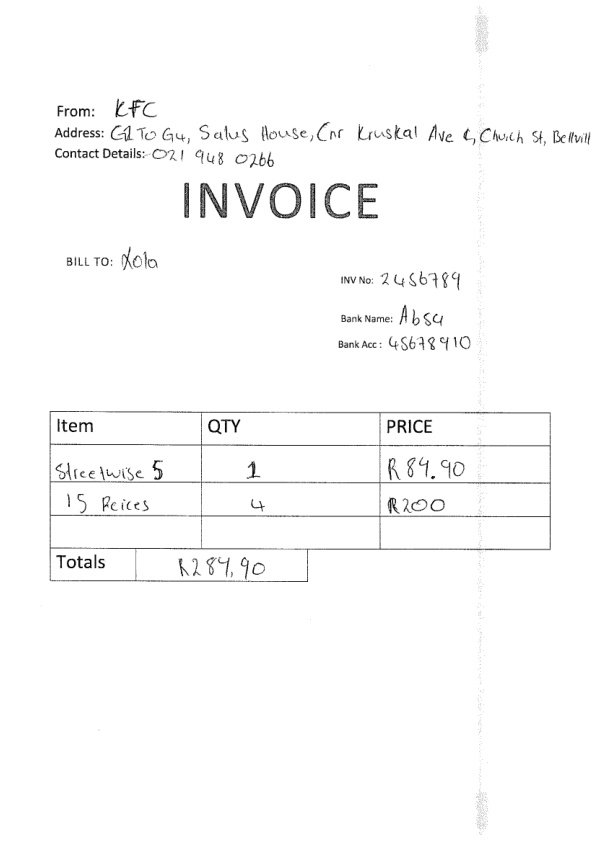 From: KFC
Address: G1 To G4, Salus House, Cnr Kruskal Ave &, Church St, Bellvill
Contact Details: 021 948 0266
INVOICE
BILL TO: Xola
INV No: 2456789
Bank Name: Absa
Bank Acc : 45678910
Item QTY PRICE
Streetwise 5 1 R84.90
15 Peices 4 R200
Totals R284,90